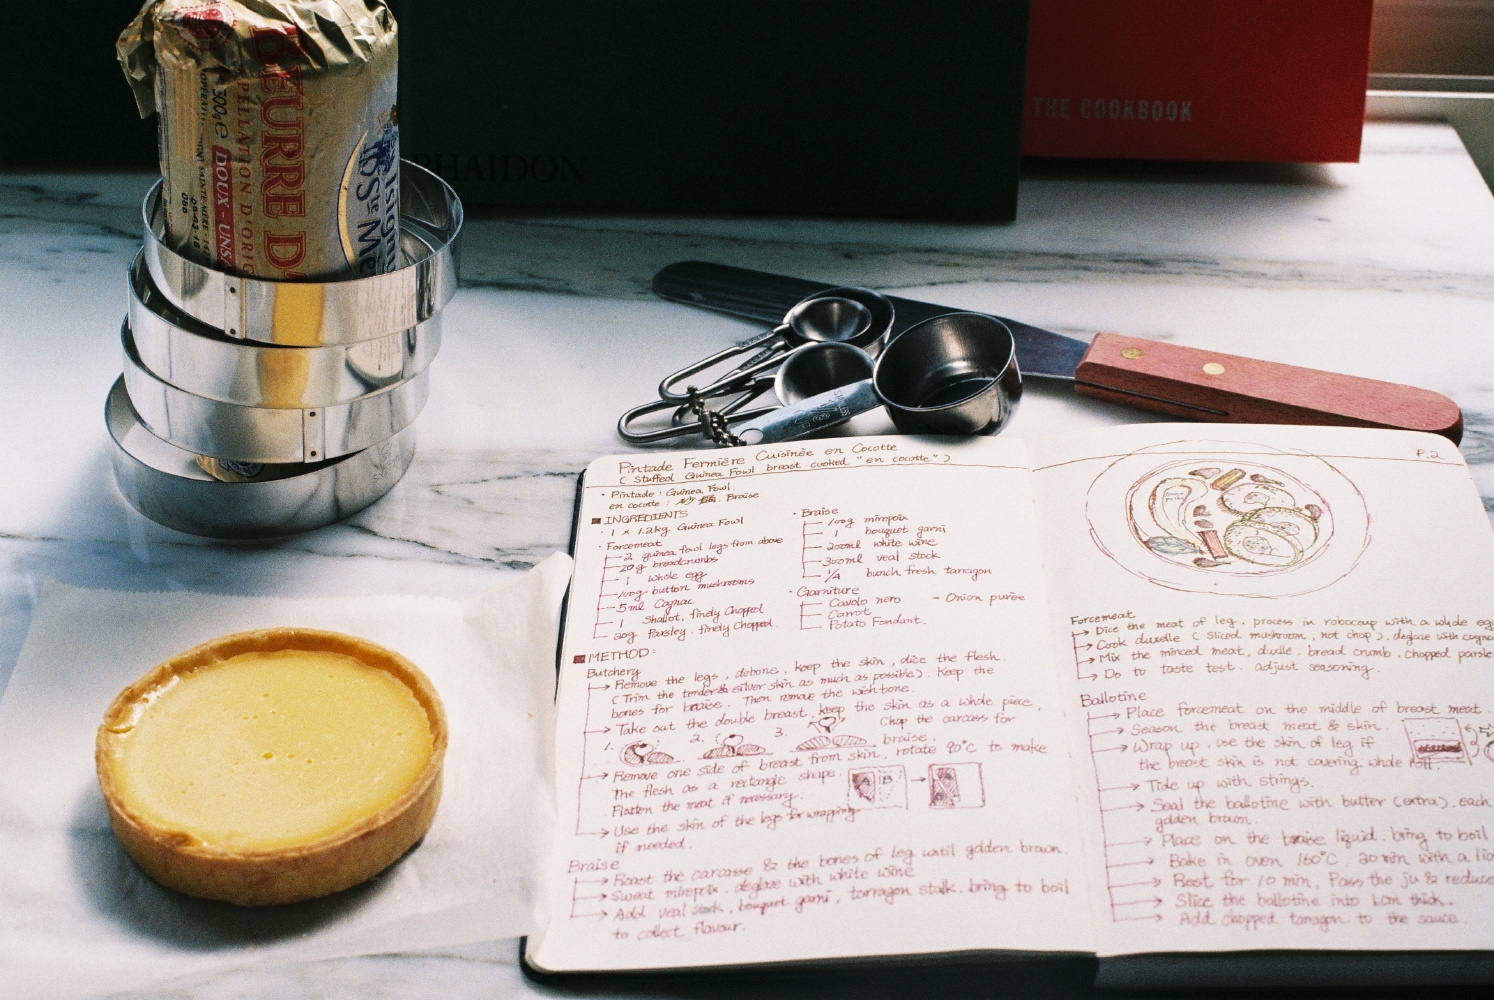 BEURRE D
APPELLATION D'ORIG
500g e
DOUX - UNSA
Isigny
Ste Mè
PHAIDON
THE COOKBOOK
Pintade Fermière Cuisinée en Cocotte
( Stuffed Guinea Fowl breast cooked "en cocotte")
· Pintade : Guinea Fowl.
en cocotte : Braise
■ INGREDIENTS
· 1 x 1.2kg Guinea Fowl
· Forcemeat
2 guinea fowl legs from above
20g breadcrumbs
1 whole egg
100g button mushrooms
5ml Cognac
1 Shallot, finely Chopped
20g Parsley, finely Chopped.
· Braise
100g mirepoix
1 bouquet garni
200ml white wine
300ml veal stock
1/4 bunch fresh tarragon
· Garniture
Cavolo nero - Onion purée
Carrot
Potato Fondant.
■ METHOD:
Butchery
Remove the legs, debone, keep the skin, dice the flesh.
(Trim the tender & silver skin as much as possible). Keep the
bones for braise. Then remove the wishbone.
Take out the double breast, keep the skin as a whole piece,
Chop the carcass for
braise.
1. 2. 3.
Remove one side of breast from skin, rotate 90°C to make
the flesh as a rectangle shape.
Flatten the meat if necessary.
Use the skin of the legs for wrapping
if needed.
Braise
Roast the carcasse & the bones of leg until golden brown.
Sweat mirepoix, deglaze with white wine
Add veal stock, bouquet garni, tarragon stalk, bring to boil
to collect flavour.
P.2
Forcemeat
Dice the meat of leg, process in robocoup with a whole egg
Cook duxelle ( sliced mushroom, not chop), deglaze with cognac
Mix the minced meat, duxelle, bread crumb, chopped parsle
Do to taste test, adjust seasoning.
Ballotine
Place forcemeat on the middle of breast meat.
Season the breast meat & skin.
Wrap up, use the skin of leg if
the breast skin is not covering whole roll.
Tide up with strings.
Seal the ballotine with butter (extra), each
golden brown.
Place on the braise liquid, bring to boil
Bake in oven 160°C, 20 min with a lid
Rest for 10 min, Pass the ju & reduce
Slice the ballotine into 1cm thick.
Add chopped tarragon to the sauce.